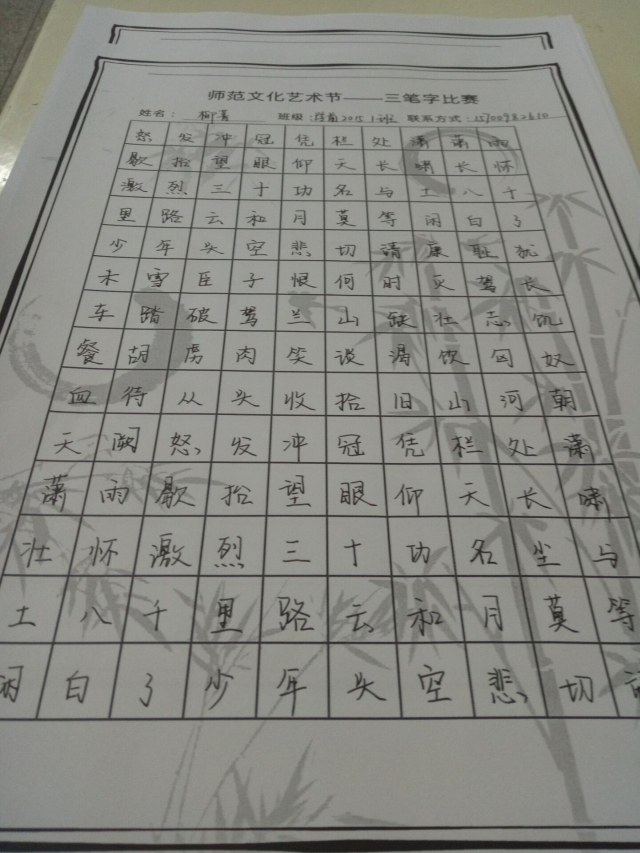 师范文化艺术节——三笔字比赛
姓名：柳青 班级：学前2015 1班 联系方式：15700982610
怒发冲冠凭栏处潇潇雨
歇抬望眼仰天长啸长怀
激烈三十功名与土八千
里路云和月莫等闲白了
少年头空悲切请康耻犹
未雪臣子恨何时灭驾长
车踏破驾兰山缺壮志饥
餐胡虏肉笑谈渴饮匈奴
血待从头收拾旧山河朝
天阙怒发冲冠凭栏处潇
潇雨歇抬望眼仰天长啸
壮怀激烈三十功名尘与
土八千里路云和月莫等
闲白了少年头空悲切